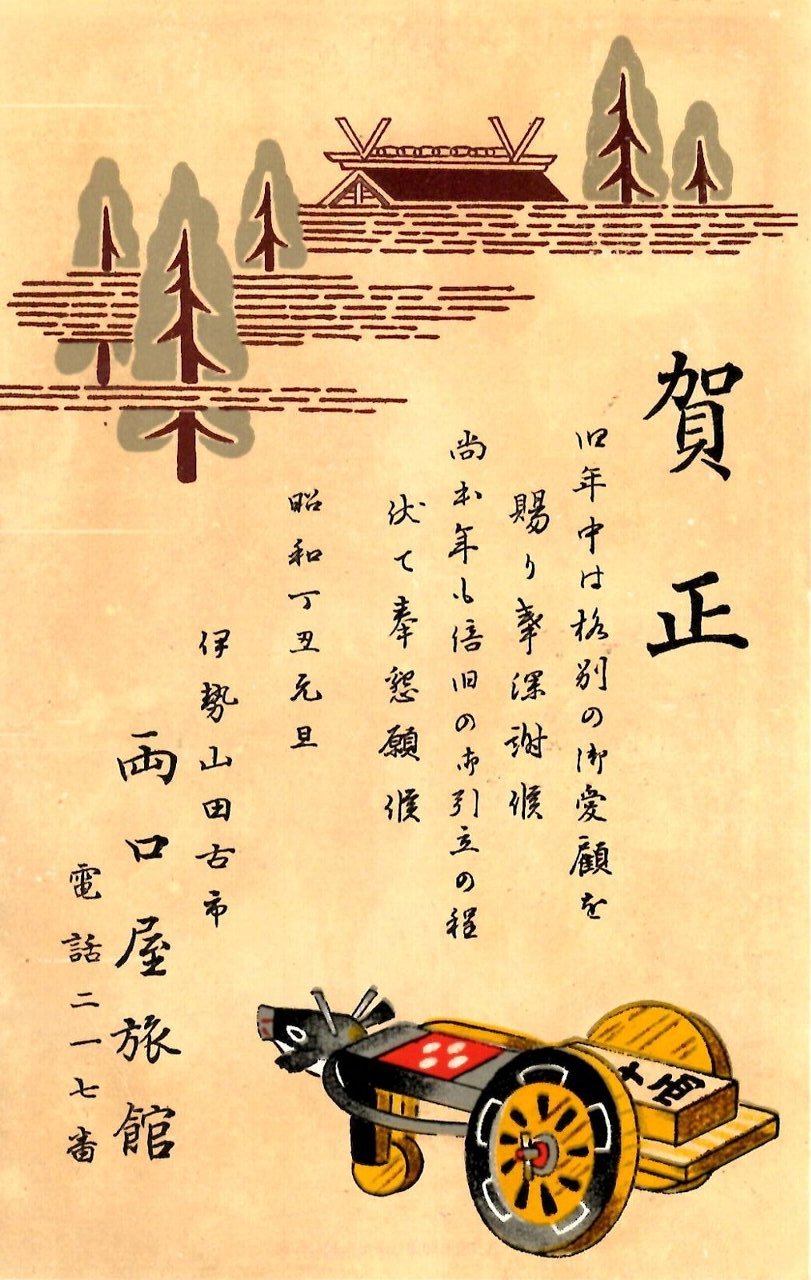 賀正
旧年中は格別の御愛顧を
賜り奉深謝候
尚本年も倍旧の御引立の程
伏て奉懇願候
昭和丁丑元旦
伊勢山田古市
両口屋旅館
電話二一七番
千両